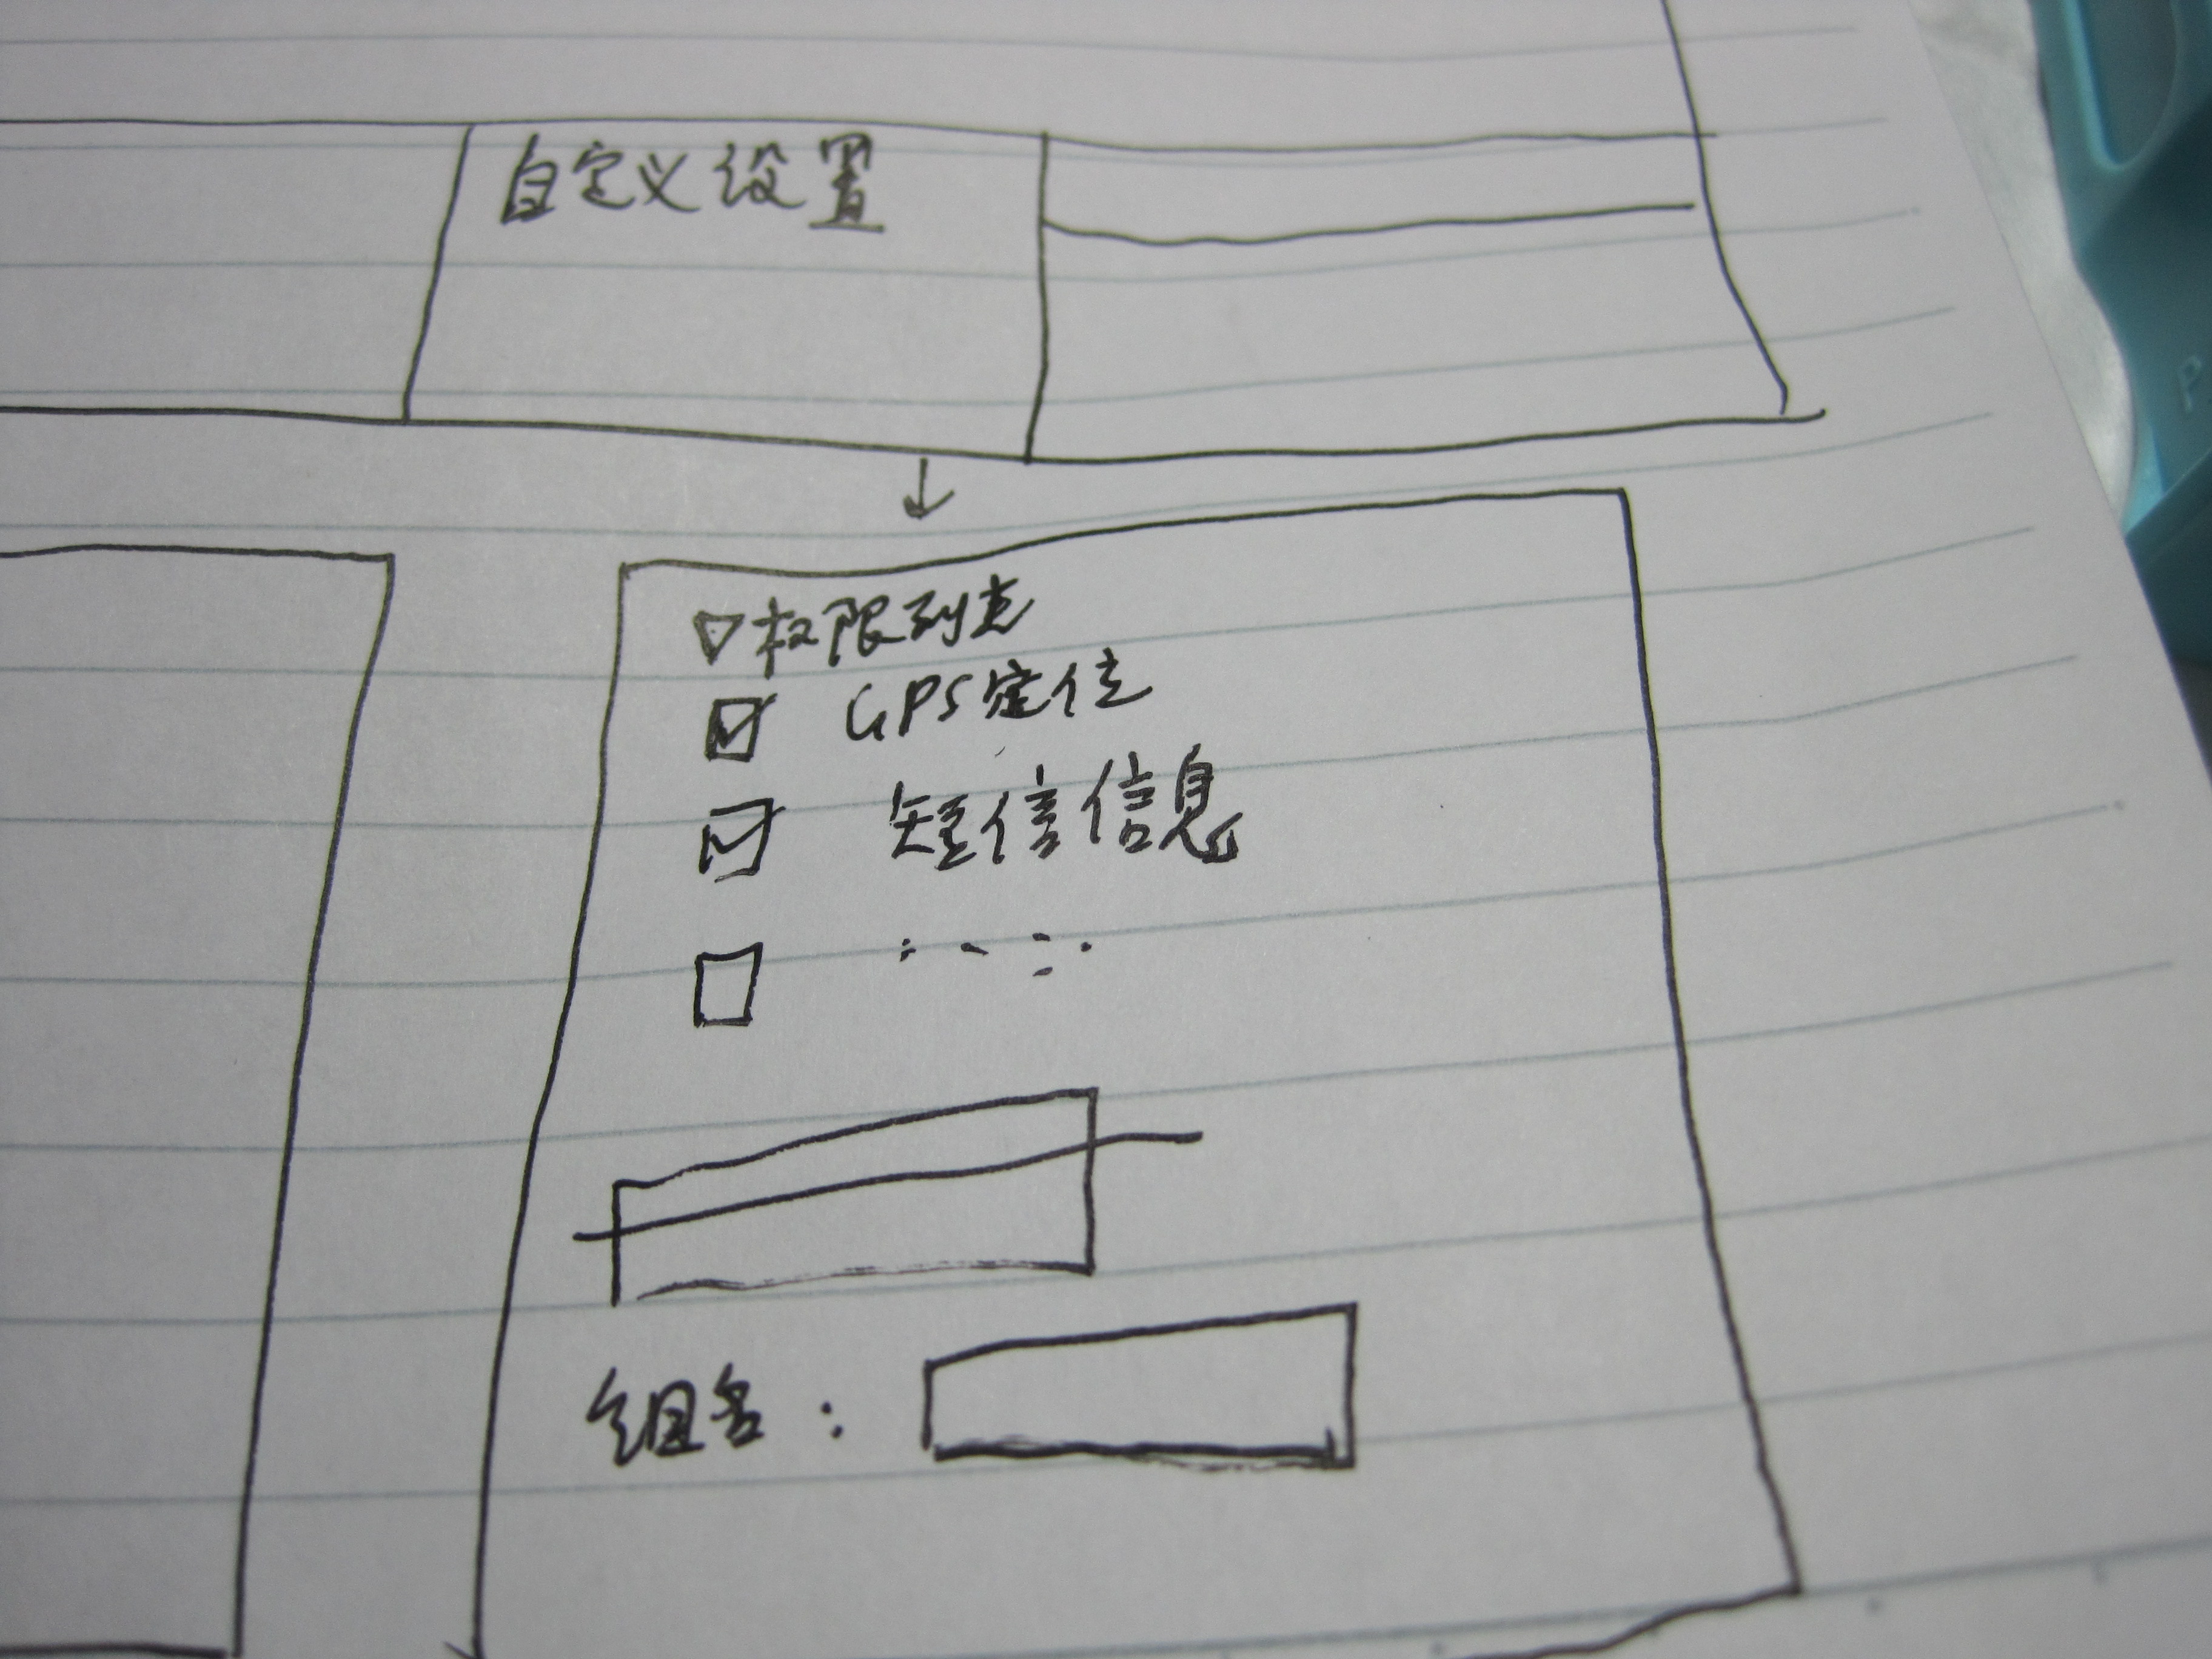 自定义设置
▽权限列表
☑ GPS定位
☑ 短信信息
组名：